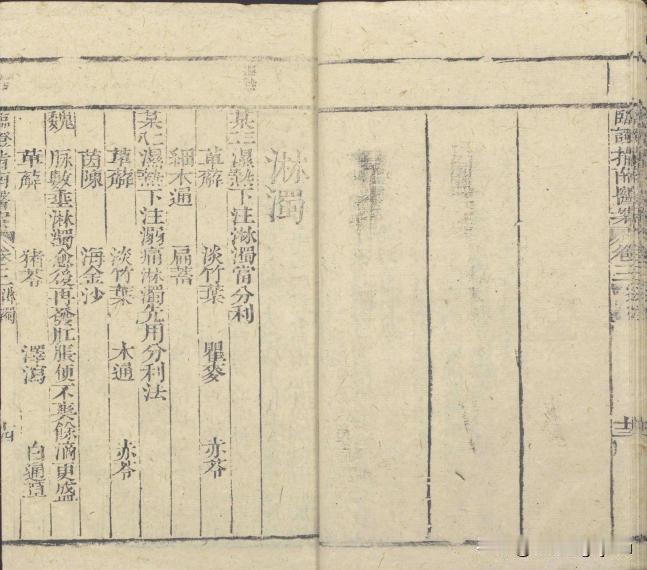 臨證指南醫案 卷三
淋濁
某三 濕熱下注淋濁當分利
萆薢 淡竹葉 瞿麥 赤苓
細木通 扁蓄
某仁 濕熱下注溺痛淋濁先用分利法
萆薢 淡竹葉 木通 赤苓
茵陳 海金沙
魏 脉數垂淋濁愈後再發肛脹便不爽餘滴更盛
萆薢 猪苓 澤瀉 白通草
臨證指南醫案 卷三 淋濁